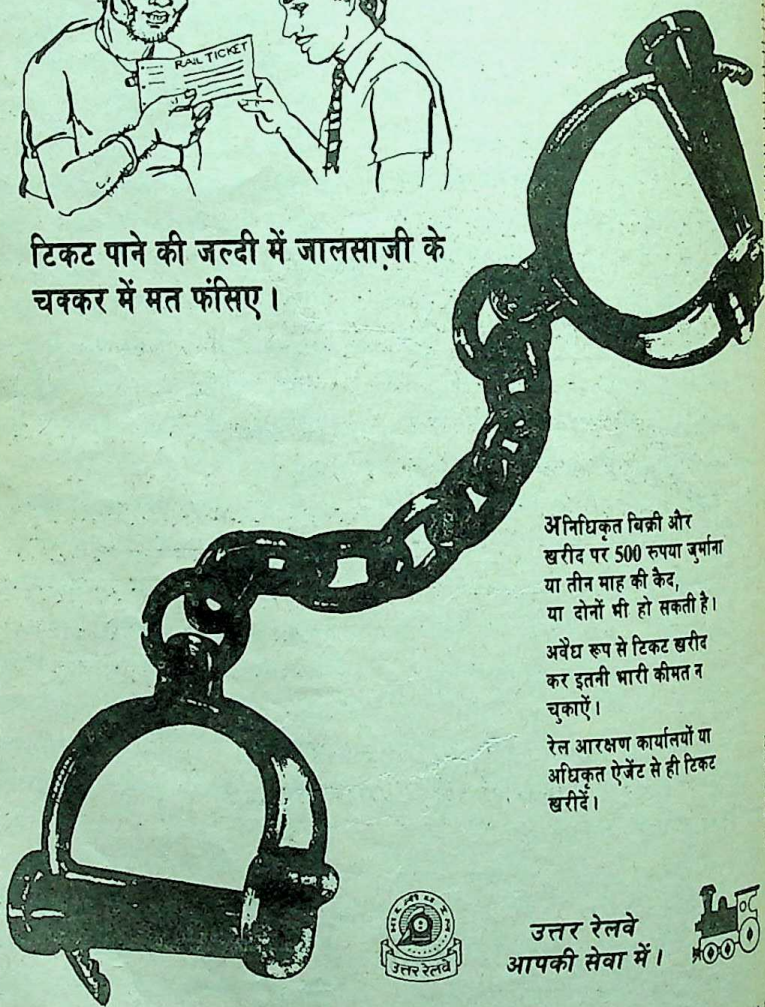 RAIL TICKET
टिकट पाने की जल्दी में जालसाज़ी के
चक्कर में मत फंसिए।
अनिधिकृत बिक्री और
खरीद पर 500 रुपया जुर्माना
या तीन माह की कैद,
या दोनों भी हो सकती है।
अवैध रूप से टिकट खरीद
कर इतनी भारी कीमत न
चुकाऐं।
रेल आरक्षण कार्यालयों या
अधिकृत ऐजेंट से ही टिकट
खरीदें।
उत्तर रेलवे
उत्तर रेलवे
आपकी सेवा में।